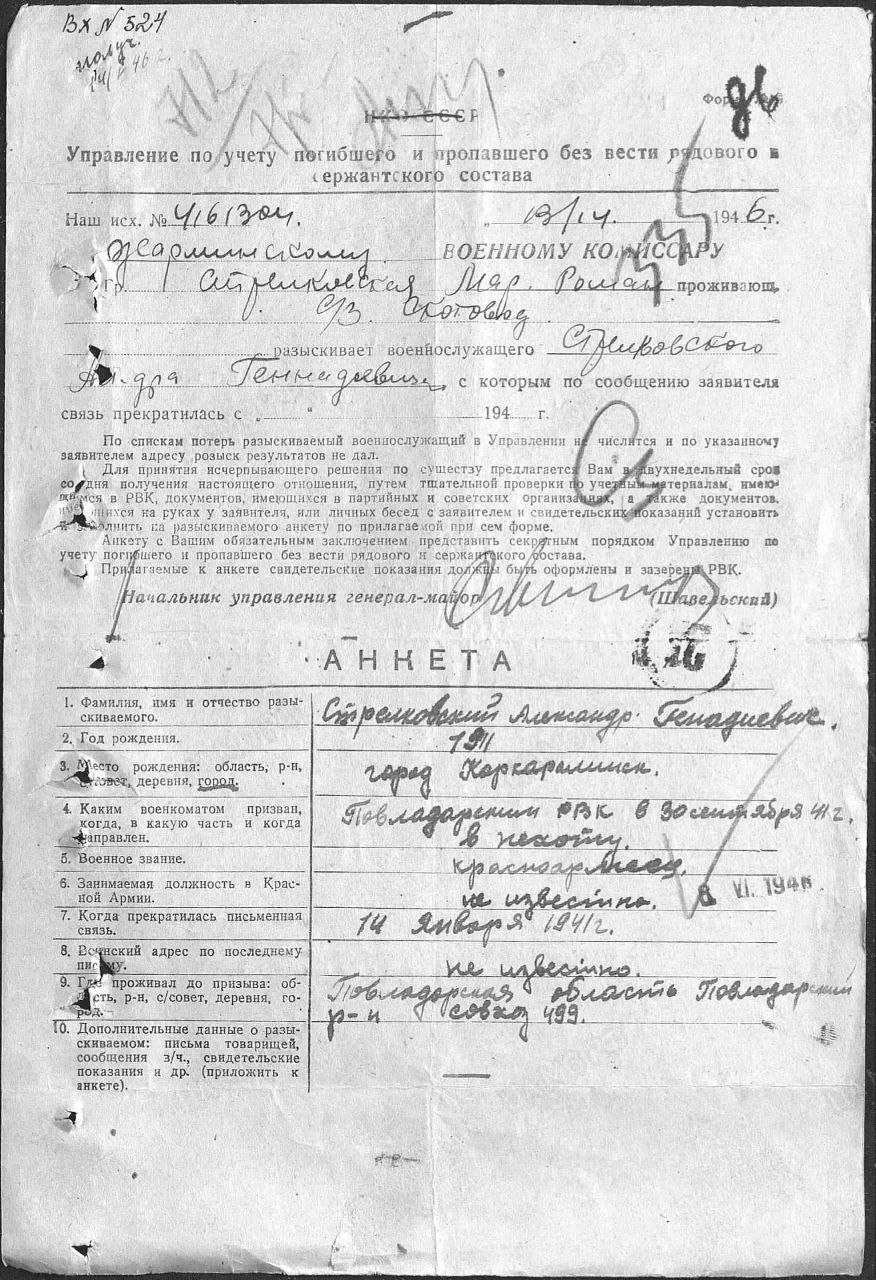 Вх N 524
получ.
46 г.
Форма
НКО СССР
Управление по учету погибшего и пропавшего без вести рядового и
сержантского состава
Наш исх. № 416304. „ 13/IV. 1946 г.
Жарминскому ВОЕННОМУ КОМИССАРУ
гр. Стрелковская Мар. Роман проживающ.
С/З. Скотовод
разыскивает военнослужащего Стрелковского
Ал-дра Геннадиевича, с которым по сообщению заявителя
связь прекратилась с „ “ 194 г.
По спискам потерь разыскиваемый военнослужащий в Управлении не числится и по указанному
заявителем адресу розыск результатов не дал.
Для принятия исчерпывающего решения по существу предлагается Вам в двухнедельный срок
со дня получения настоящего отношения, путем тщательной проверки по учетным материалам, имею-
щимся в РВК, документов, имеющихся в партийных и советских организациях, а также документов,
имеющихся на руках у заявителя, или личных бесед с заявителем и свидетельских показаний установить
и заполнить на разыскиваемого анкету по прилагаемой при сем форме.
Анкету с Вашим обязательным заключением представить секретным порядком Управлению по
учету погибшего и пропавшего без вести рядового и сержантского состава.
Прилагаемые к анкете свидетельские показания должны быть оформлены и заверены РВК.
Начальник управления генерал-майор (Шавельский)
АНКЕТА
1. Фамилия, имя и отчество разы-
скиваемого.
Стрелковский Александр Генадиевич.
2. Год рождения.
1911
3. Место рождения: область, р-н,
с/совет, деревня, город.
город Каркаралинск.
4. Каким военкоматом призван,
когда, в какую часть и когда
направлен.
Повладарским РВК в 30 сентября 41 г.
в пехоту.
5. Военное звание.
красноармеец.
6. Занимаемая должность в Крас-
ной Армии.
не известно.
6 VI. 1946
7. Когда прекратилась письменная
связь.
14 января 1941 г.
8. Воинский адрес по последнему
письму.
не известно.
9. Где проживал до призыва: об-
ласть, р-н, с/совет, деревня, го-
род.
Повладарская область Повладарский
р-н совхоз 499.
10. Дополнительные данные о разы-
скиваемом: письма товарищей,
сообщения з/ч., свидетельские
показания и др. (приложить к
анкете).